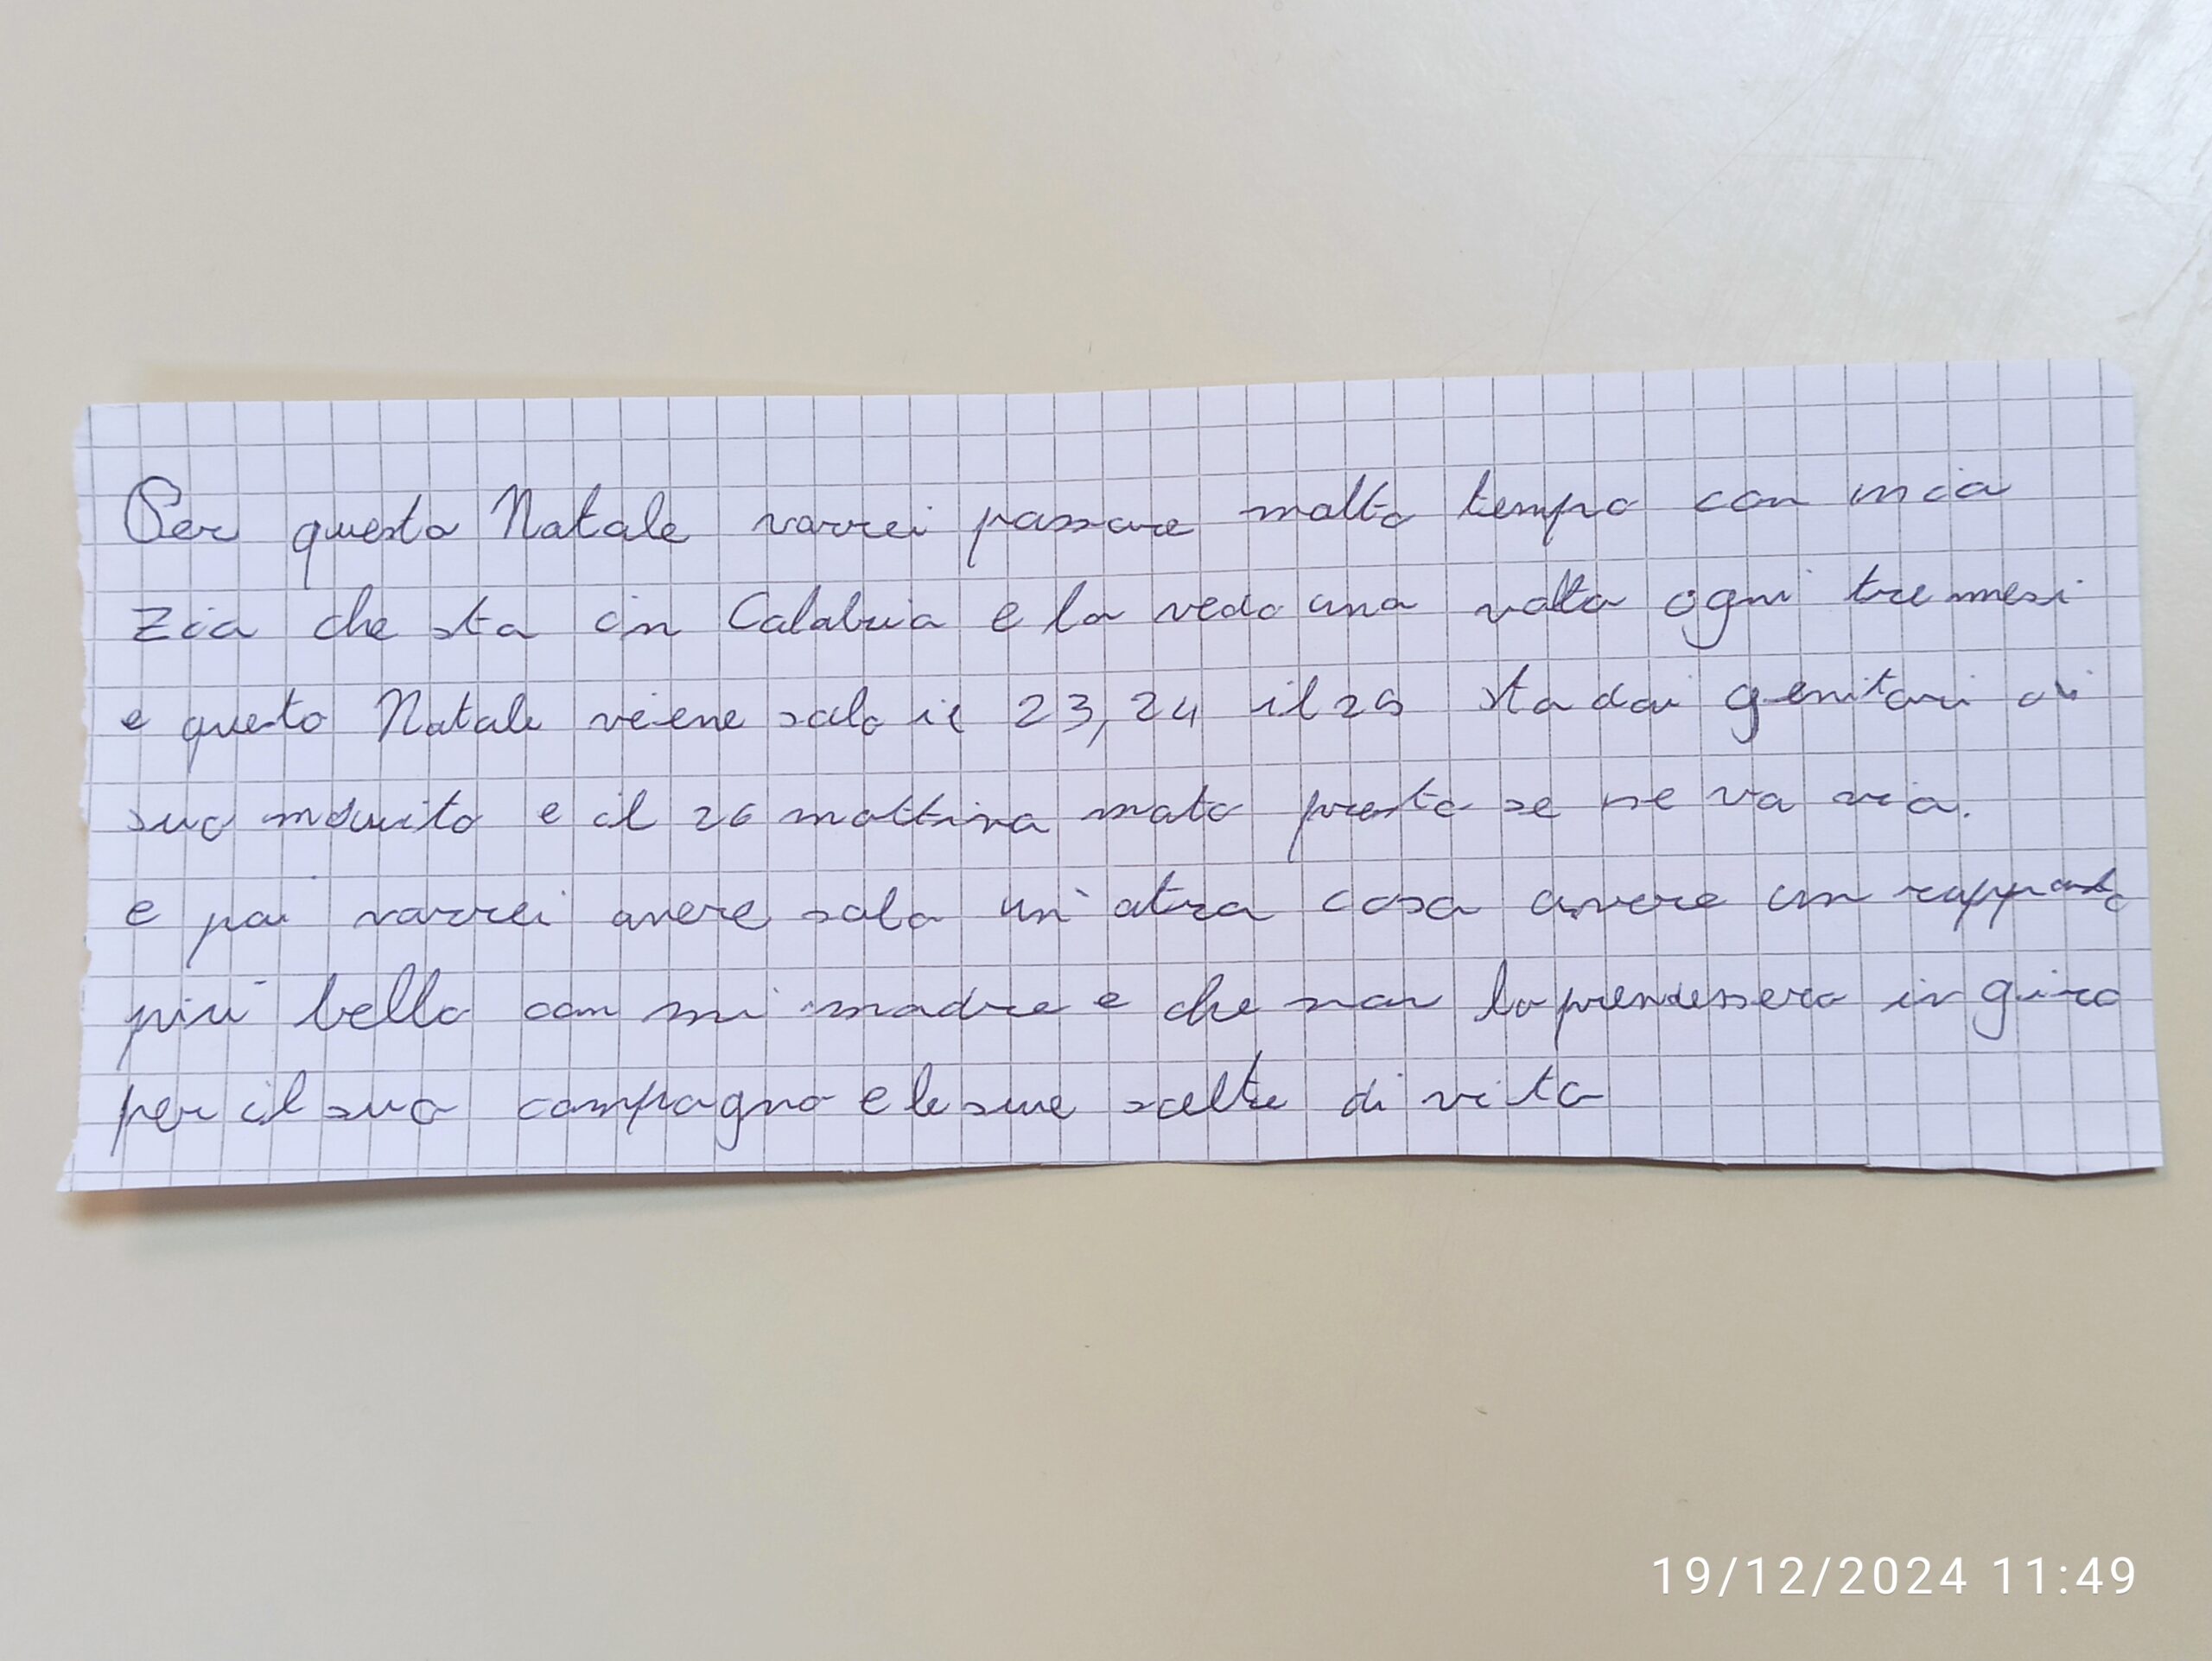 Per questo Natale vorrei passare molto tempo con mia
zia che sta in Calabria e la vedo una volta ogni tre mesi
e questo Natale veiene solo il 23, 24 il 25 sta dai genitori di
suo marito e il 26 mattina molto presto se ne va via.
e poi vorrei avere solo un'atra cosa avere un rapporto
più bello con mi madre e che non la prendessero in giro
per il suo compagno e le sue scelte di vita
19/12/2024 11:49